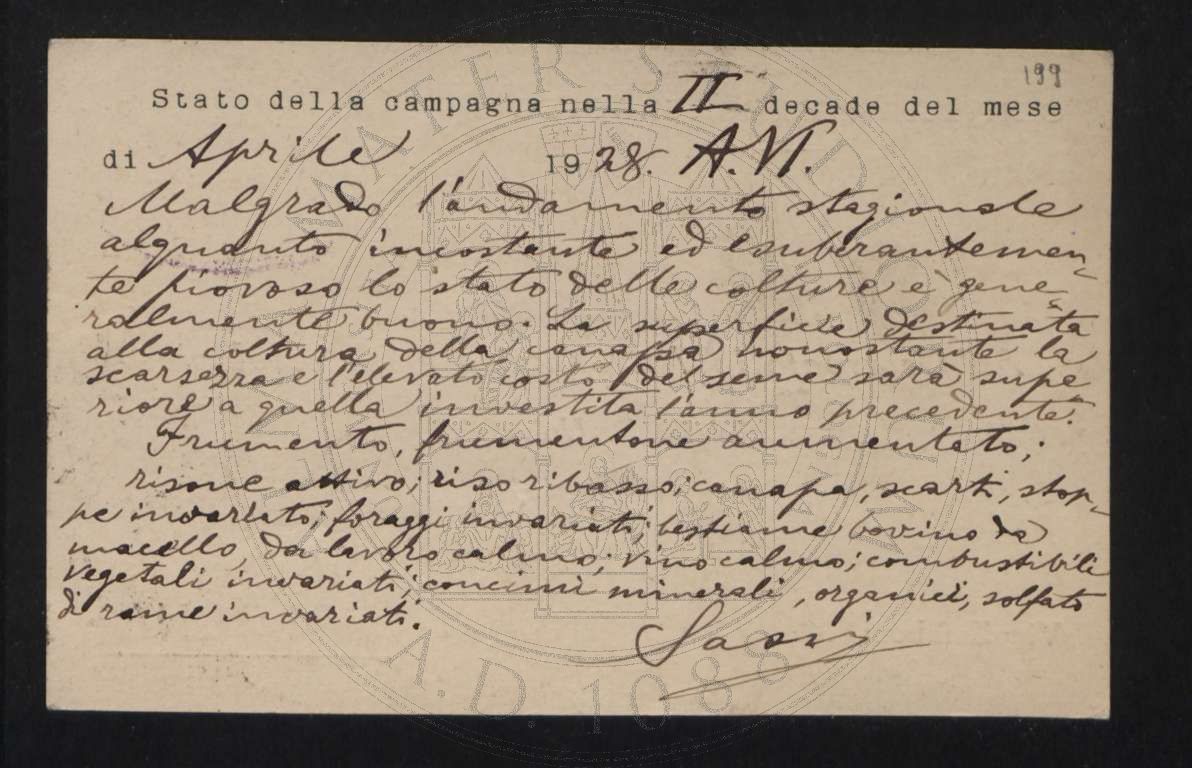 199
Stato della campagna nella II decade del mese
di Aprile 1928. A. VI.
Malgrado l'andamento stagionale
alquanto incostante ed esuberantemen-
te piovoso lo stato delle colture è gene-
ralmente buono. La superficie destinata
alla coltura della canapa nonostante la
scarsezza e l'elevato costo del seme sarà supe-
riore a quella investita l'anno precedente.
Frumento, frumentone aumentato;
risone attivo; riso ribasso; canapa, scarti, stop-
pe invariato; foraggi invariati; bestiame bovino da
macello, da lavoro calmo; vino calmo; combustibili
vegetali invariati; concimi minerali, organici, solfato
di rame invariati.
A.D. 1088